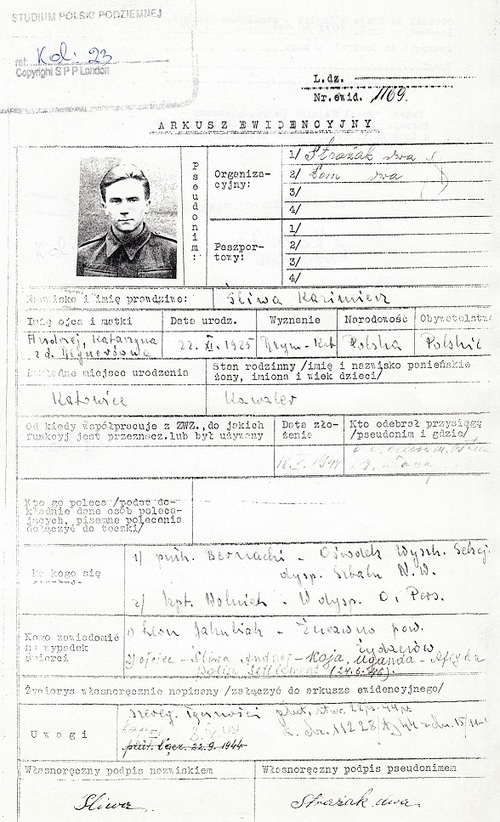 STUDIUM POLSKI PODZIEMNEJ
ref: Kol: 23
Copyright S P P London
L.dz.
Nr.ewid. 1169.
ARKUSZ EWIDENCYJNY
Pseudonim:
Organiza-
cyjny:
1/ Strażak dwa
2/ Łom dwa
3/
4/
Paszpor-
towy:
1/
2/
3/
4/
Nazwisko i imię prawdziwe: Śliwa Kazimierz
Imię ojca i matki
Data urodz.
Wyznanie
Narodowość
Obywatelstwo
Andrzej, Katarzyna
z d.
22. 1925
Rzym-Kat
Polska
Polskie
Dokładne miejsce urodzenia
Stan rodzinny /imię i nazwisko panieńskie
żony, imiona i wiek dzieci/
Katowice
Kawaler
Od kiedy współpracuje z ZWZ.,do jakich
funkcyj jest przeznacz.lub był używany
Data zło-
żenia
Kto odebrał przysięgę
/pseudonim i gdzie/
1944
Kto go poleca /podać do-
kładnie dane osób poleca-
jących, pisemne polecenia
dołączyć do teczki/
Na kogo się
1/ Bernacki - Ośrodek Wysz.
dysp. Sztabu N.W.
2/ kpt. Wolniak - W dysp. O. Pers.
Kogo zawiadomić
na wypadek
śmierci
1) Leon Jakubiak - Żurawno pow.
Żydaczów
Ojciec - Śliwa Andrzej - Koja, Uganda - Afryka
Polish Settlement (24.6.46)
Życiorys własnoręcznie napisany /załączyć do arkusza ewidencyjnego/
Uwagi
plut. łącz. 22.9.1944
L. dz. 11228/tj 44
Własnoręczny podpis nazwiskiem
Własnoręczny podpis pseudonimem
Śliwa
Strażak dwa